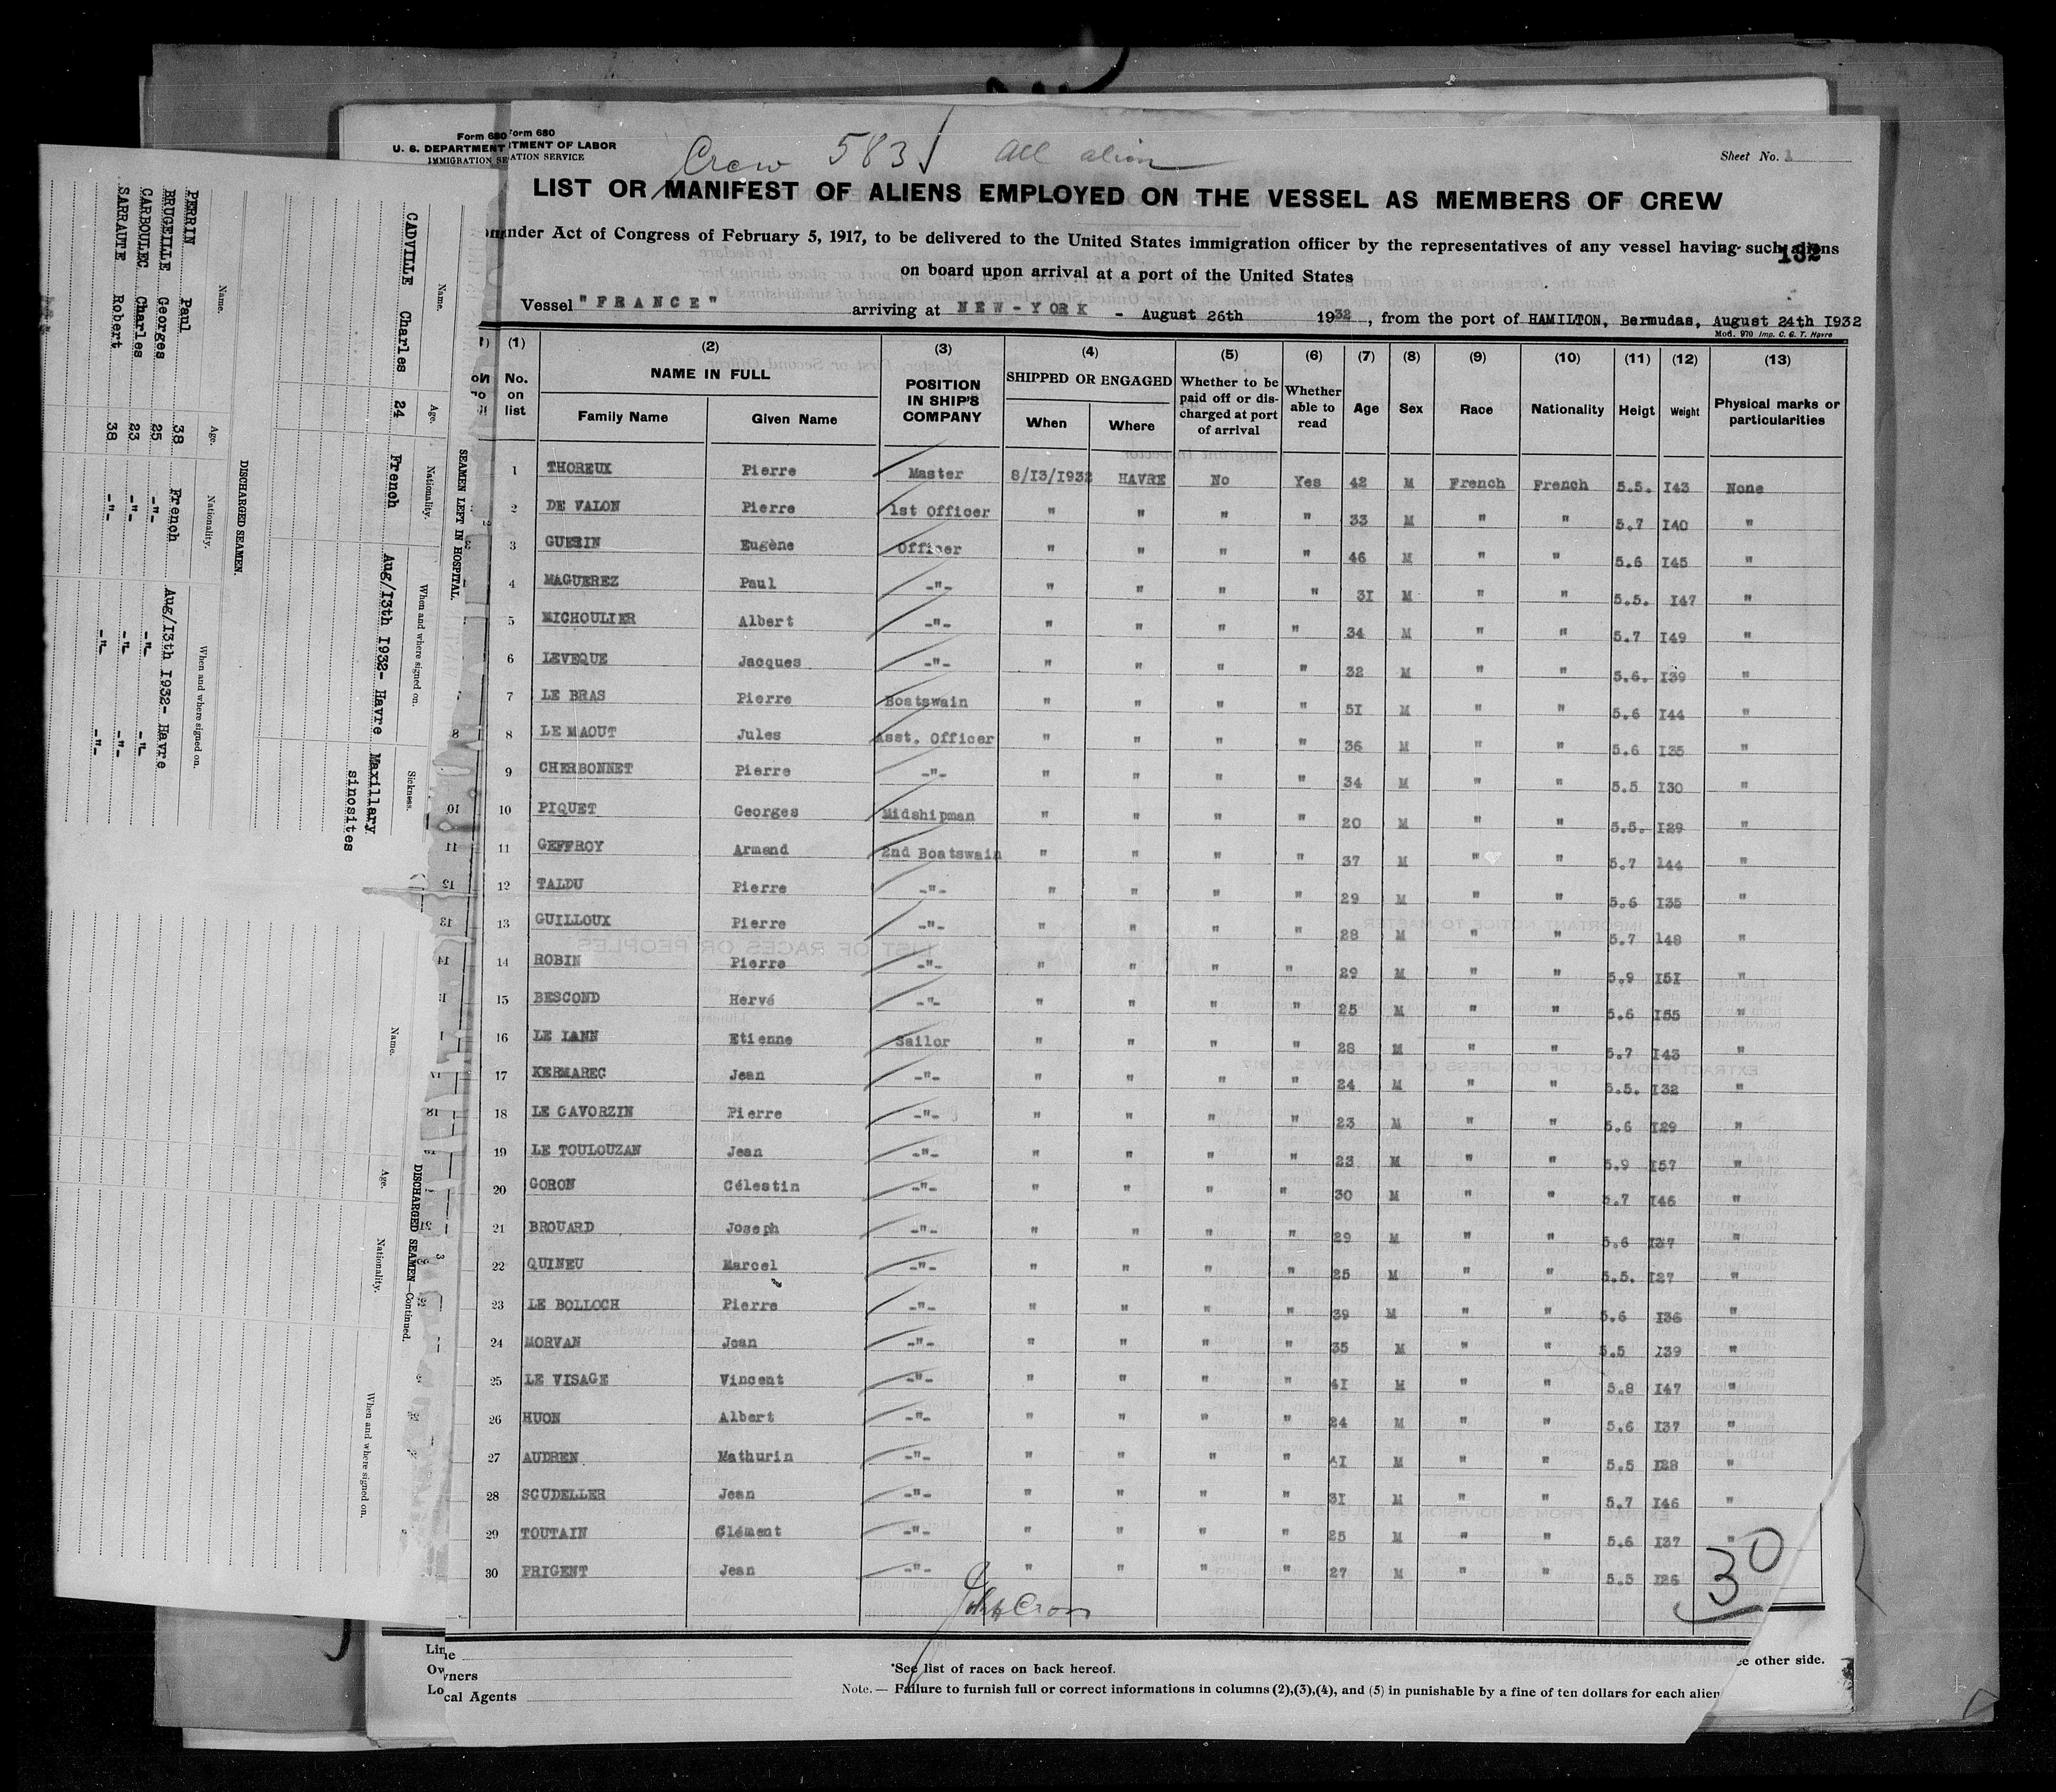 Form 680
Form 680
U. S. DEPARTMENT
TMENT OF LABOR
IMMIGRATION SE
ATION SERVICE
Crew 583 All alien
Sheet No. 1
LIST OR MANIFEST OF ALIENS EMPLOYED ON THE VESSEL AS MEMBERS OF CREW
under Act of Congress of February 5, 1917, to be delivered to the United States immigration officer by the representatives of any vessel having such aliens
132
on board upon arrival at a port of the United States
Vessel "FRANCE" arriving at NEW-YORK - August 26th 1932, from the port of HAMILTON, Bermudas, August 24th I932
Mod. 970 Imp. C. G. T. Havre
(1) (2) (3) (4) (5) (6) (7) (8) (9) (10) (11) (12) (13)
No. on list
NAME IN FULL
Family Name
Given Name
POSITION IN SHIP'S COMPANY
SHIPPED OR ENGAGED
When
Where
Whether to be paid off or dis-charged at port of arrival
Whether able to read
Age
Sex
Race
Nationality
Heigt
Weight
Physical marks or particularities
1 THOREUX Pierre Master 8/I3/I932 HAVRE No Yes 42 M French French 5.5. I43 None
2 DE VALON Pierre 1st Officer " " " " 33 M " " 5.7 I40 "
3 GUERIN Eugène Officer " " " " 46 M " " 5.6 I45 "
4 MAGUEREZ Paul -"- " " " " 3I M " " 5.5. I47 "
5 MICHOULIER Albert -"- " " " " 34 M " " 5.7 I49 "
6 LEVEQUE Jacques -"- " " " " 32 M " " 5.6. I39 "
7 LE BRAS Pierre Boatswain " " " " 5I M " " 5.6 I44 "
8 LE MAOUT Jules Asst. Officer " " " " 36 M " " 5.6 I35 "
9 CHERBONNET Pierre -"- " " " " 34 M " " 5.5 I30 "
10 PIQUET Georges Midshipman " " " " 20 M " " 5.5. I29 "
11 GEFFROY Armand 2nd Boatswain " " " " 37 M " " 5.7 144 "
12 TALDU Pierre -"- " " " " 29 M " " 5.6 I35 "
13 GUILLOUX Pierre -"- " " " " 28 M " " 5.7 148 "
14 ROBIN Pierre -"- " " " " 29 M " " 5.9 I5I "
15 BESCOND Hervé -"- " " " " 25 M " " 5.6 I55 "
16 LE LANN Etienne Sailor " " " " 28 M " " 5.7 I43 "
17 KERMAREC Jean -"- " " " " 24 M " " 5.5. I32 "
18 LE CAVORZIN Pierre -"- " " " " 23 M " " 5.6 I29 "
19 LE TOULOUZAN Jean -"- " " " " 23 M " " 5.9 I57 "
20 GORON Célestin -"- " " " " 30 M " " 5.7 I46 "
21 BROUARD Joseph -"- " " " " 29 M " " 5.6 I37 "
22 QUINEU Marcel -"- " " " " 25 M " " 5.5. I27 "
23 LE BOLLOCH Pierre -"- " " " " 39 M " " 5.6 I36 "
24 MORVAN Jean -"- " " " " 35 M " " 5.5 I39 "
25 LE VISAGE Vincent -"- " " " " 4I M " " 5.8 I47 "
26 HUON Albert -"- " " " " 24 M " " 5.6 I37 "
27 AUDREN Mathurin -"- " " " " 4I M " " 5.5 I28 "
28 SCUDELLER Jean -"- " " " " 3I M " " 5.7 I46 "
29 TOUTAIN Clément -"- " " " " 25 M " " 5.6 I37 "
30 PRIGENT Jean -"- " " " " 27 M " " 5.5 I26
30
Line
Owners
Local Agents
*See list of races on back hereof.
e other side.
Note. — Failure to furnish full or correct informations in columns (2),(3),(4), and (5) in punishable by a fine of ten dollars for each alien
SEAMEN LEFT IN HOSPITAL.
Name. Age. Nationality. When and where signed on. Sickness.
CADVILLE Charles 24 French Aug/I3th I932- Havre Maxillary
sinosites
DISCHARGED SEAMEN.
Name. Age. Nationality. When and where signed on.
PERRIN Paul 38 French Aug/I3th I932- Havre
BRUGEILLE Georges 25 -"- -"- -"-
CARBOULEC Charles 23 -"- -"- -"-
SARRAUTE Robert 38 -"- -"- -"-
DISCHARGED SEAMEN—Continued.
Name. Age. Nationality. When and where signed on.